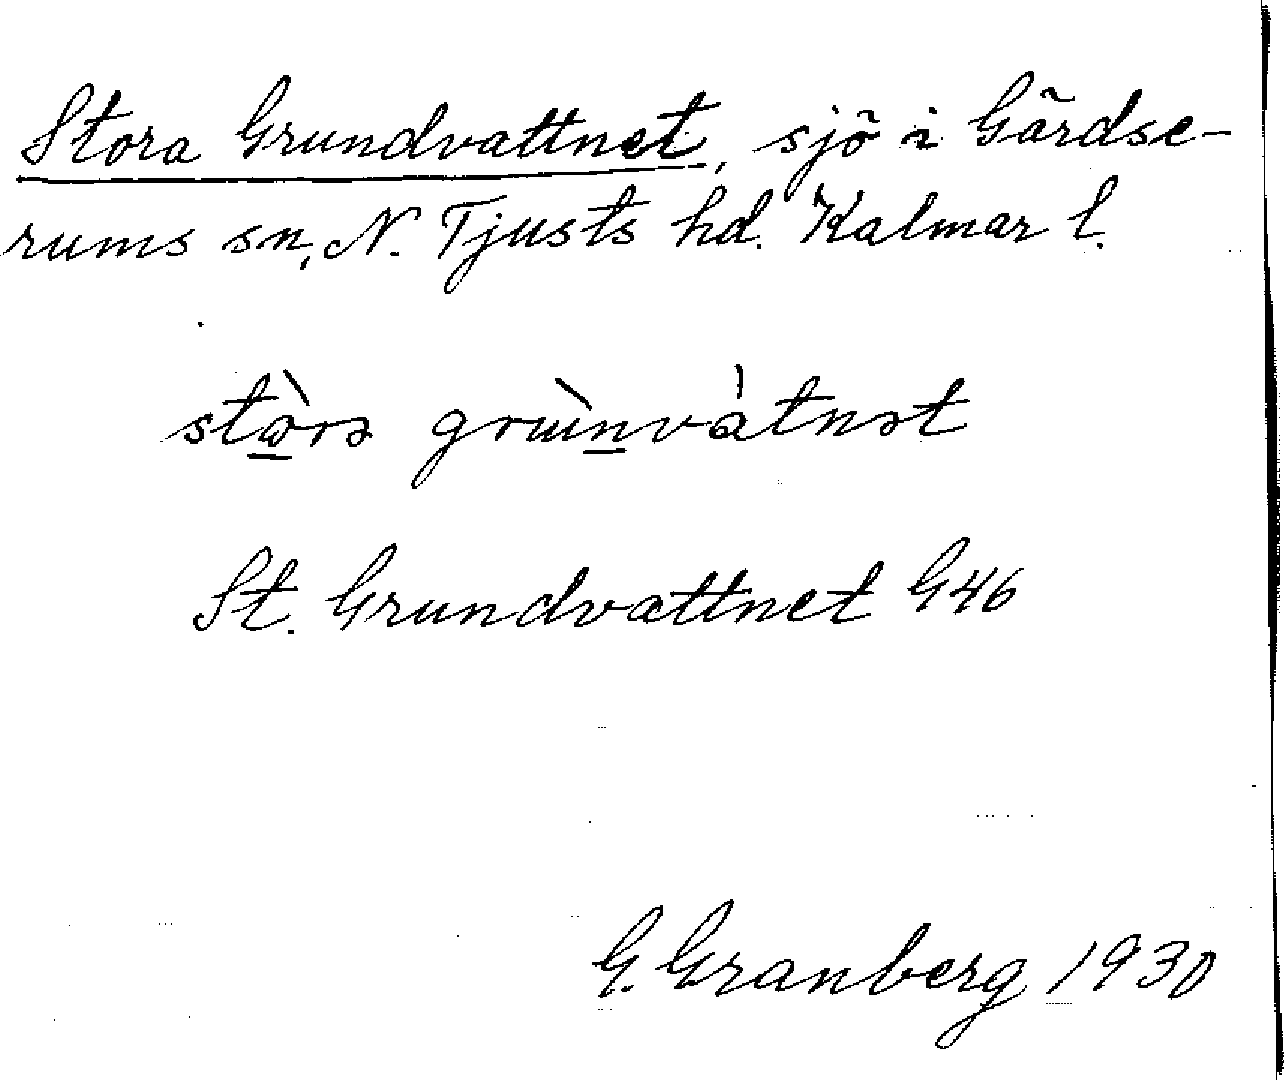 Stora Grundvattnet, sjö i Gärdse-
rums sn, N. Tjusts hd. Kalmar l.
St. Grundvattnet G46
G. Granberg 1930